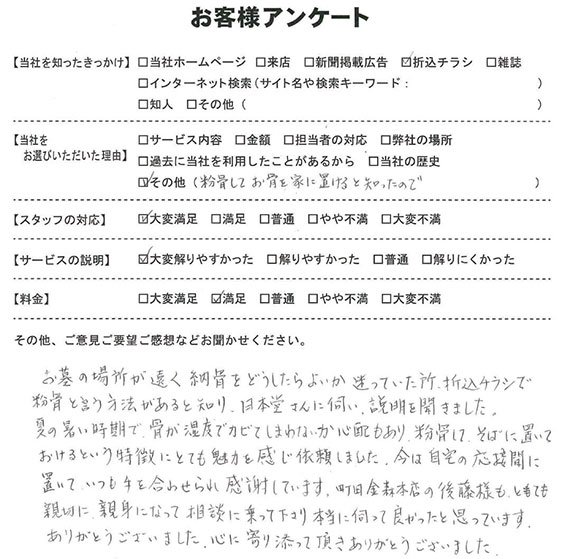 お客様アンケート
【当社を知ったきっかけ】 □当社ホームページ □来店 □新聞掲載広告 ☑折込チラシ □雑誌
□インターネット検索(サイト名や検索キーワード: )
□知人 □その他( )
【当社を
お選びいただいた理由】 □サービス内容 □金額 □担当者の対応 □弊社の場所
□過去に当社を利用したことがあるから □当社の歴史
☑その他(粉骨してお骨を家に置けると知ったので )
【スタッフの対応】 ☑大変満足 □満足 □普通 □やや不満 □大変不満
【サービスの説明】 ☑大変解りやすかった □解りやすかった □普通 □解りにくかった
【料金】 □大変満足 ☑満足 □普通 □やや不満 □大変不満
その他、ご意見ご要望ご感想などお聞かせください。
お墓の場所が遠く納骨をどうしたらよいか迷っていた所、折込チラシで
粉骨と言う方法があると知り、日本堂さんに伺い、説明を聞きました。
夏の暑い時期で、骨が湿度でカビてしまわないか心配もあり、粉骨して、そばに置いて
おけるという特徴にとても魅力を感じ依頼しました。今は自宅の応接間に
置いて、いつも手を合わせられ感謝しています。町田金森本店の後藤様も、とても
親切に、親身になって相談に乗って下さり本当に伺って良かったと思っています。
ありがとうございました。心に寄り添って頂きありがとうございました。